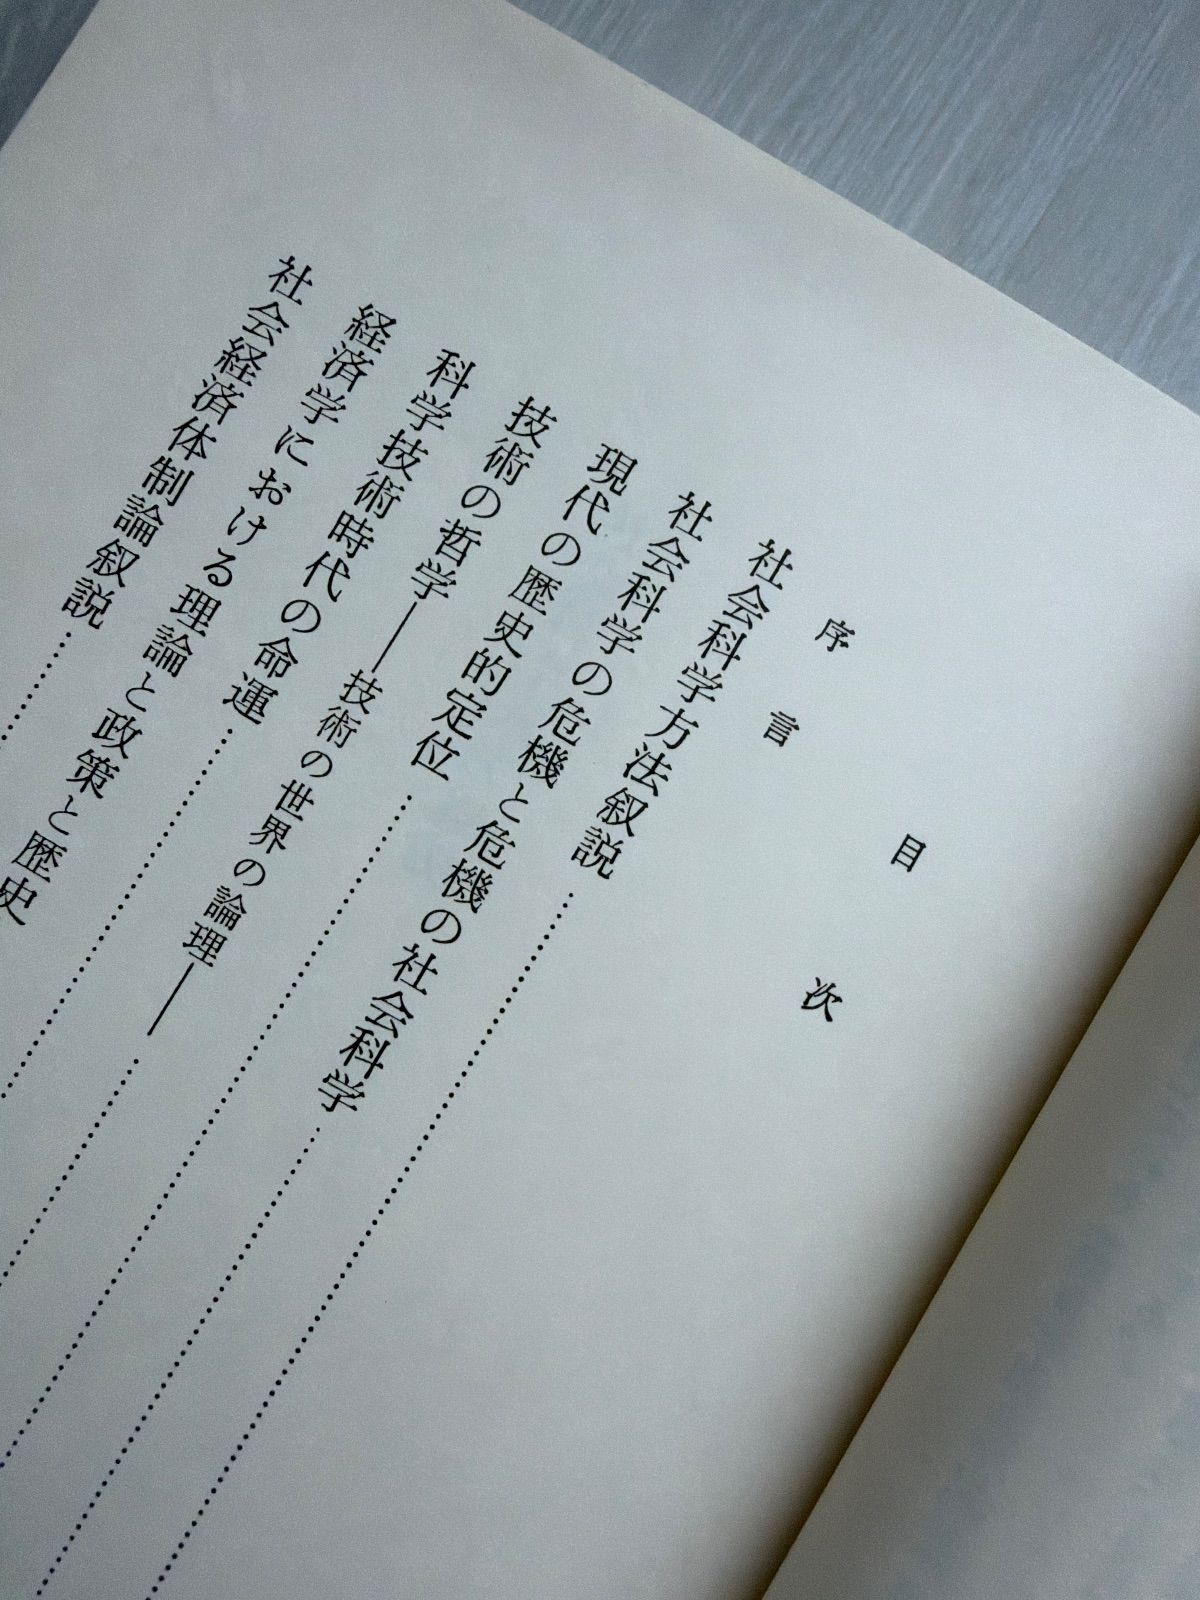 目次
序言
社会科学方法叙説………………
社会科学の危機と危機の社会科学………………
現代の歴史的定位………………
技術の哲学――技術の世界の論理――………………
科学技術時代の命運………………
経済学における理論と政策と歴史
社会経済体制論叙説………………